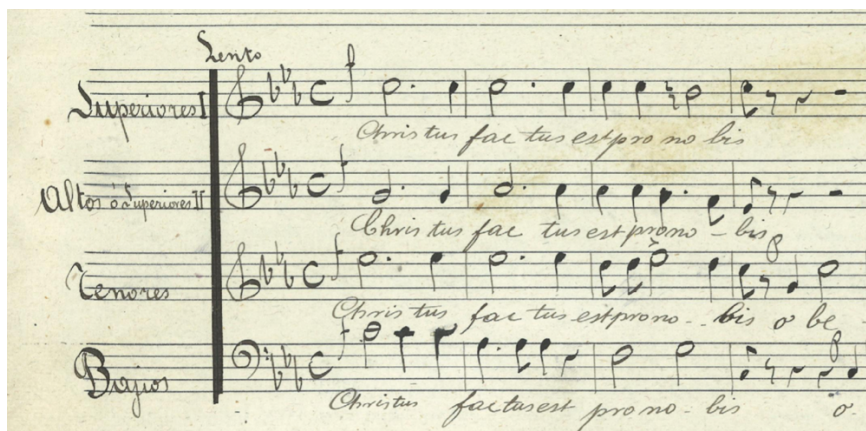 Lento
Superiores I
Christus factus est pro nobis
Altos ó Superiores II
Christus factus est pro no - bis
Tenores
Christus factus est pro no - - bis o be
Bajos
Christus factus est pro no - bis o